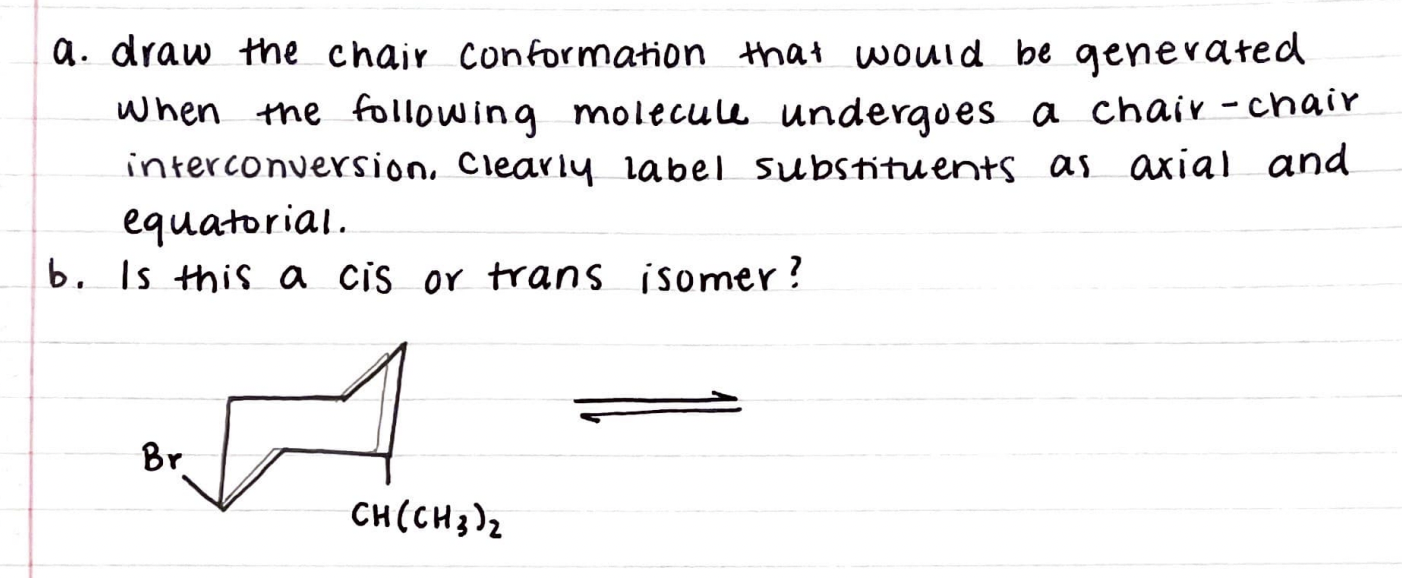 a. draw the chair conformation that would be generated
when the following molecule undergoes a chair-chair
interconversion. Clearly label substituents as axial and
equatorial.
b. Is this a cis or trans isomer?
Br
CH(CH3)2